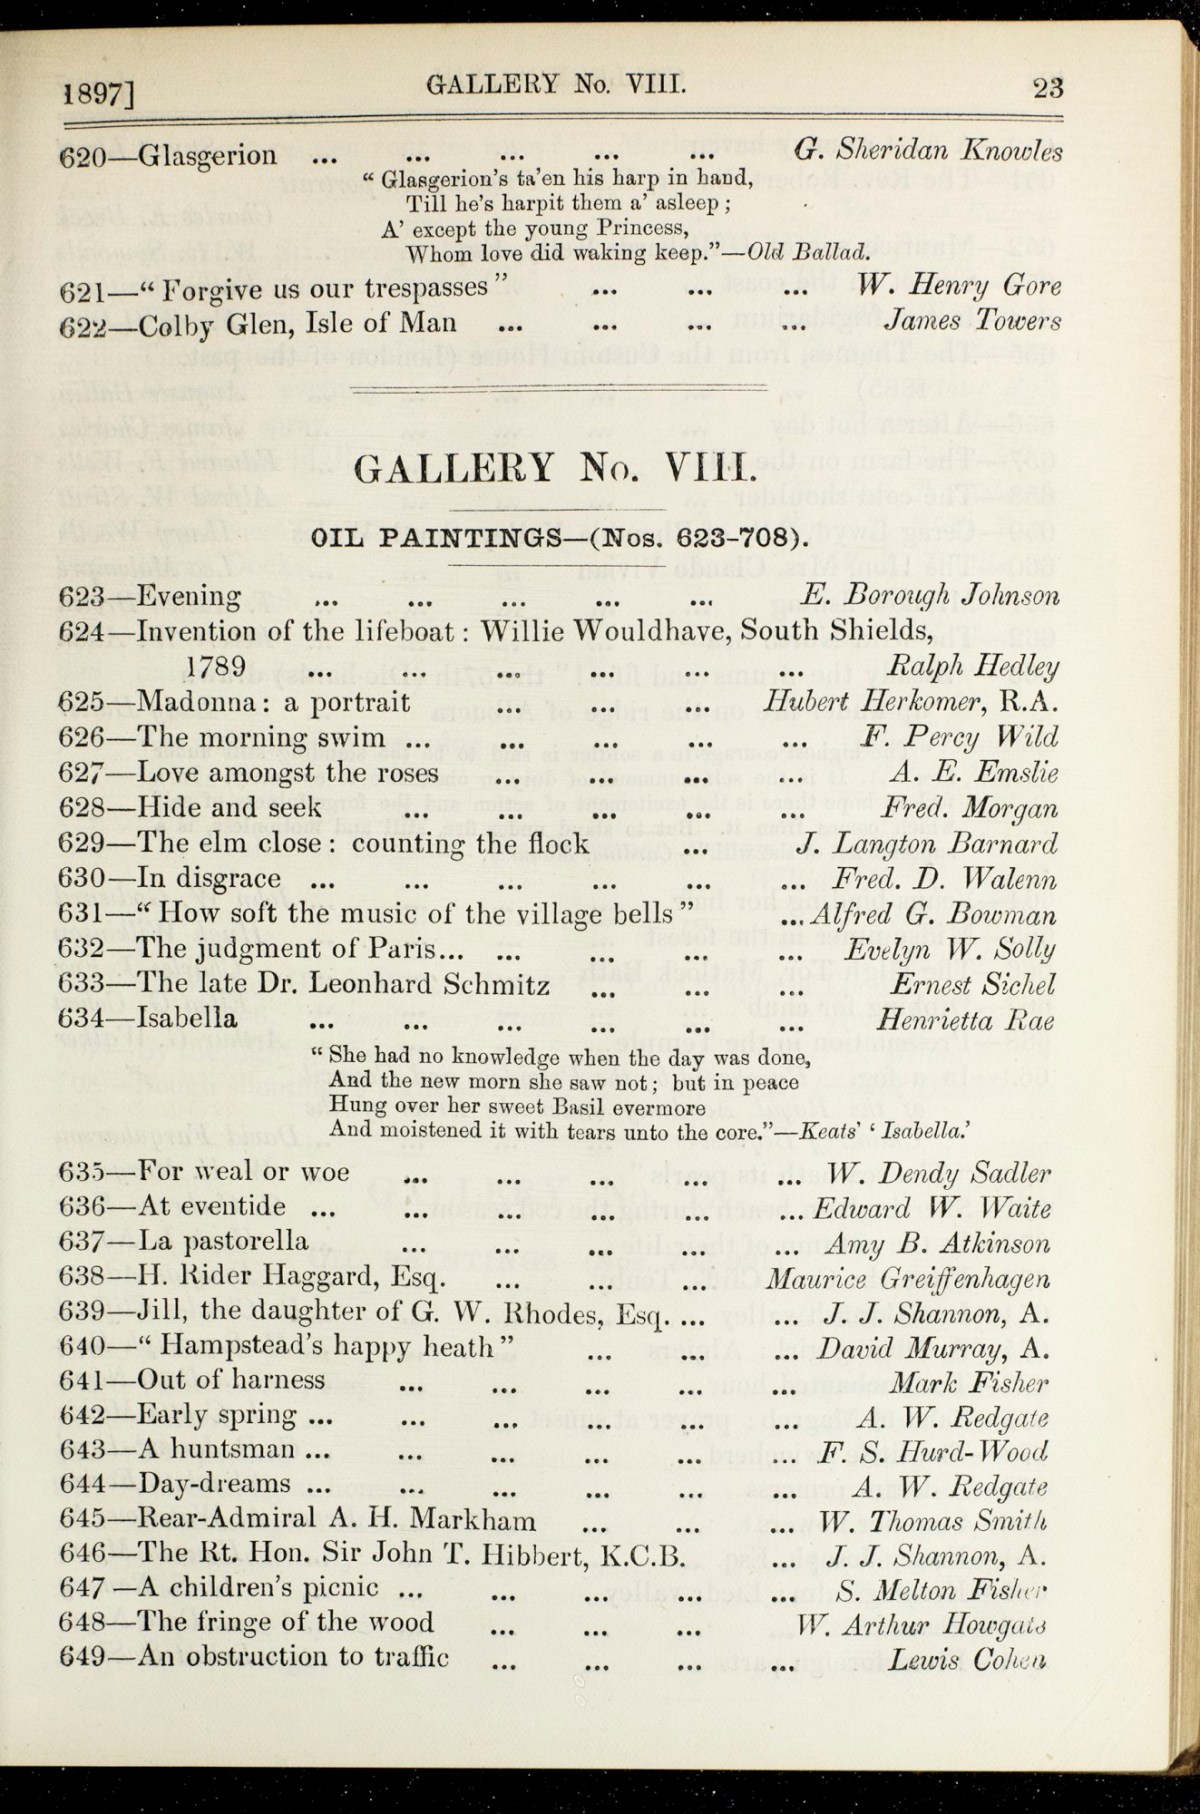 1897] GALLERY No. VIII. 23
620—Glasgerion ... ... ... ... ... G. Sheridan Knowles
“ Glasgerion’s ta’en his harp in hand,
Till he’s harpit them a’ asleep ;
A’ except the young Princess,
Whom love did waking keep.”—Old Ballad.
621—“ Forgive us our trespasses ” ... ... ... W. Henry Gore
622—Colby Glen, Isle of Man ... ... ... ... James Towers
GALLERY No. VIII.
OIL PAINTINGS—(Nos. 623-708).
623—Evening ... ... ... ... ... E. Borough Johnson
624—Invention of the lifeboat : Willie Wouldhave, South Shields,
1789 ... ... ... ... ... ... Ralph Hedley
625—Madonna : a portrait ... ... ... Hubert Herkomer, R.A.
626—The morning swim ... ... ... ... ... F. Percy Wild
627—Love amongst the roses ... ... ... ... A. E. Emslie
628—Hide and seek ... ... ... ... ... Fred. Morgan
629—The elm close : counting the flock ... J. Langton Barnard
630—In disgrace ... ... ... ... ... ... Fred. D. Walenn
631—“ How soft the music of the village bells ” ... Alfred G. Bowman
632—The judgment of Paris... ... ... ... ... Evelyn W. Solly
633—The late Dr. Leonhard Schmitz ... ... ... Ernest Sichel
634—Isabella ... ... ... ... ... ... Henrietta Rae
“ She had no knowledge when the day was done,
And the new morn she saw not ; but in peace
Hung over her sweet Basil evermore
And moistened it with tears unto the core.”—Keats’ ‘ Isabella.’
635—For weal or woe ... ... ... ... ... W. Dendy Sadler
636—At eventide ... ... ... ... ... ... Edward W. Waite
637—La pastorella ... ... ... ... ... Amy B. Atkinson
638—H. Rider Haggard, Esq. ... ... ... Maurice Greiffenhagen
639—Jill, the daughter of G. W. Rhodes, Esq. ... ... J. J. Shannon, A.
640—“ Hampstead’s happy heath ” ... ... ... David Murray, A.
641—Out of harness ... ... ... ... ... Mark Fisher
642—Early spring ... ... ... ... ... ... A. W. Redgate
643—A huntsman ... ... ... ... ... ... F. S. Hurd-Wood
644—Day-dreams ... ... ... ... ... ... A. W. Redgate
645—Rear-Admiral A. H. Markham ... ... ... W. Thomas Smith
646—The Rt. Hon. Sir John T. Hibbert, K.C.B. ... J. J. Shannon, A.
647—A children’s picnic ... ... ... ... ... S. Melton Fisher
648—The fringe of the wood ... ... ... W. Arthur Howgate
649—An obstruction to traffic ... ... ... ... Lewis Cohen